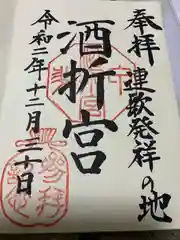 奉拝 連歌発祥の地
酒折宮
令和二年十二月三十日